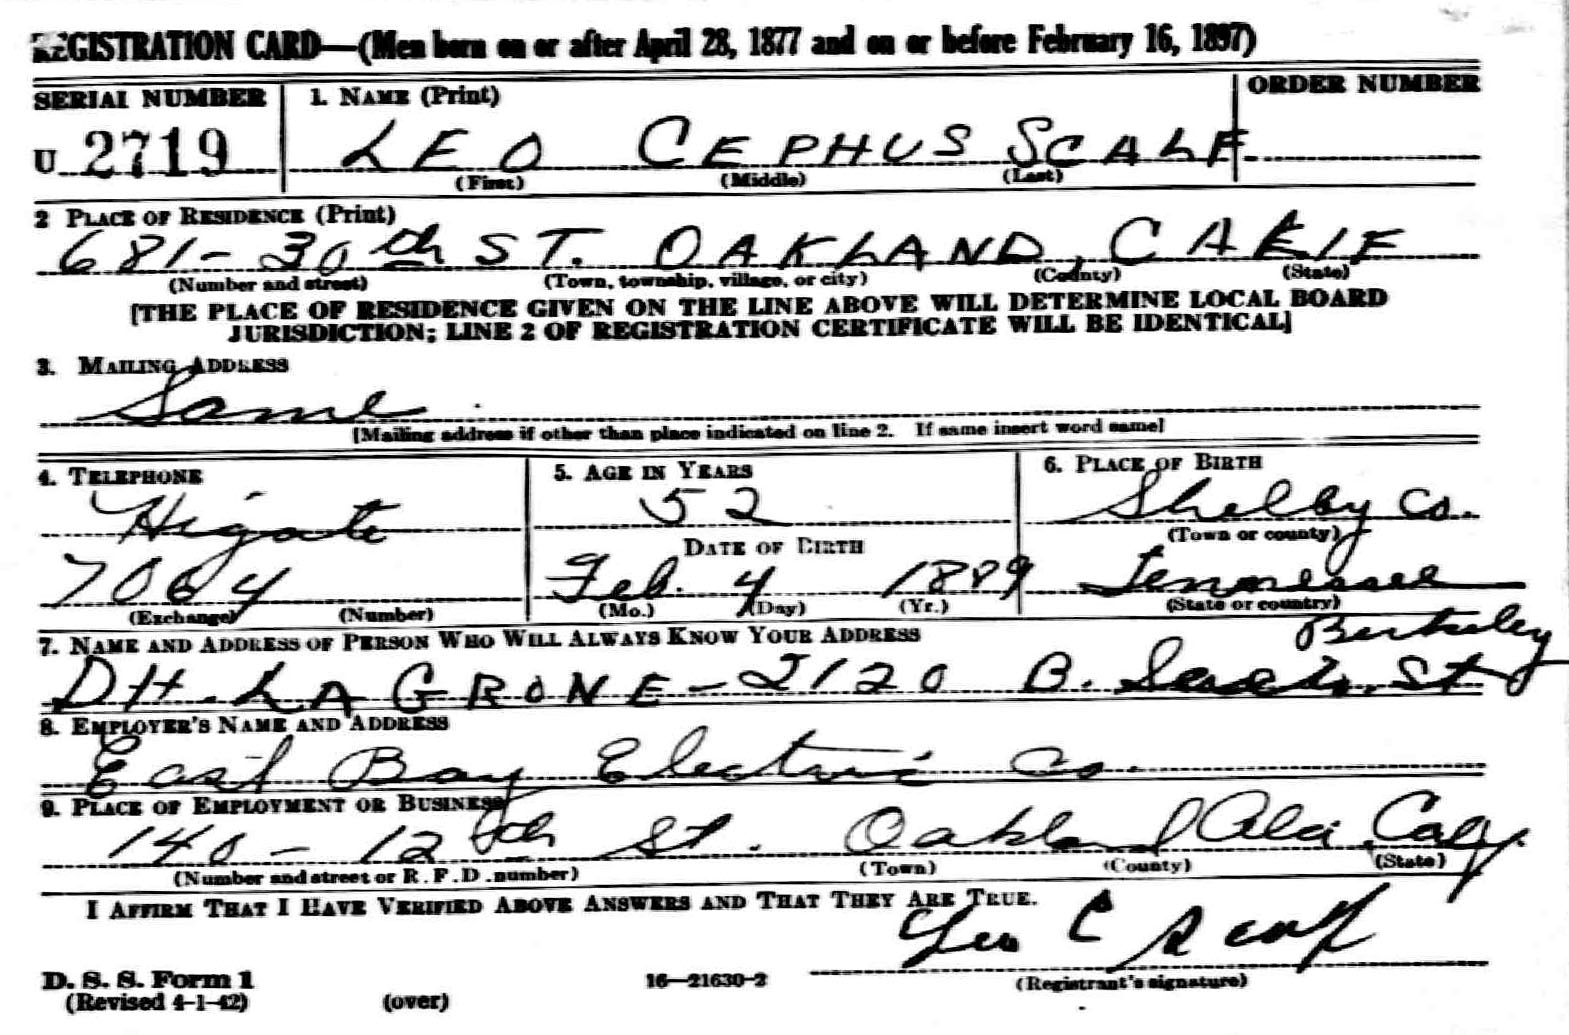 REGISTRATION CARD—(Men born on or after April 28, 1877 and on or before February 16, 1897)
SERIAL NUMBER 1. NAME (Print) ORDER NUMBER
U 2719 LEO CEPHUS SCALE
(First) (Middle) (Last)
2 PLACE OF RESIDENCE (Print)
681-30th ST. OAKLAND, CALIF
(Number and street) (Town, township, village, or city) (County) (State)
[THE PLACE OF RESIDENCE GIVEN ON THE LINE ABOVE WILL DETERMINE LOCAL BOARD
JURISDICTION; LINE 2 OF REGISTRATION CERTIFICATE WILL BE IDENTICAL]
3. MAILING ADDRESS
Same
[Mailing address if other than place indicated on line 2. If same insert word same]
4. TELEPHONE 5. AGE IN YEARS 6. PLACE OF BIRTH
Higate 52 Shelby Co.
DATE OF BIRTH (Town or county)
7064 Feb. 4 1889 Tennessee
(Exchange) (Number) (Mo.) (Day) (Yr.) (State or country)
7. NAME AND ADDRESS OF PERSON WHO WILL ALWAYS KNOW YOUR ADDRESS
Berkeley
DH. LA GRONE - 2120 B. St
8. EMPLOYER'S NAME AND ADDRESS
East Bay Electric Co.
9. PLACE OF EMPLOYMENT OR BUSINESS
140 - 12th St. Oakland Ala. Calif.
(Number and street or R.F.D. number) (Town) (County) (State)
I AFFIRM THAT I HAVE VERIFIED ABOVE ANSWERS AND THAT THEY ARE TRUE.
Leo C Scalf
D. S. S. Form 1 16—21630-2 (Registrant's signature)
(Revised 4-1-42) (over)